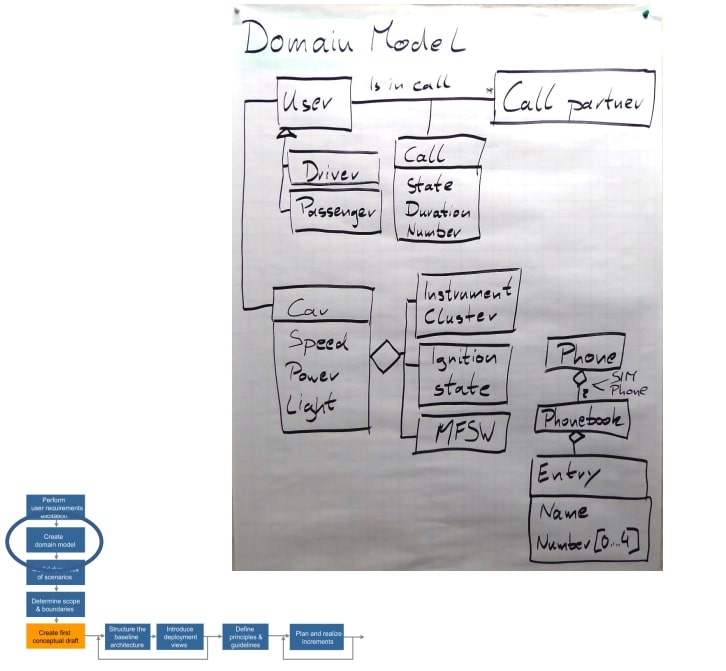 Domain Model
Is in call
User
*
Call partner
Driver
Passenger
Call
State
Duration
Number
Car
Speed
Power
Light
Instrument
Cluster
Ignition
state
MFSW
Phone
SIM
Phone
Phonebook
Entry
Name
Number [0...4]
Perform
user requirements
Create
domain model
of scenarios
Determine scope
& boundaries
Create first
conceptual draft
Structure the
baseline
architecture
Introduce
deployment
views
Define
principles &
guidelines
Plan and realize
increments